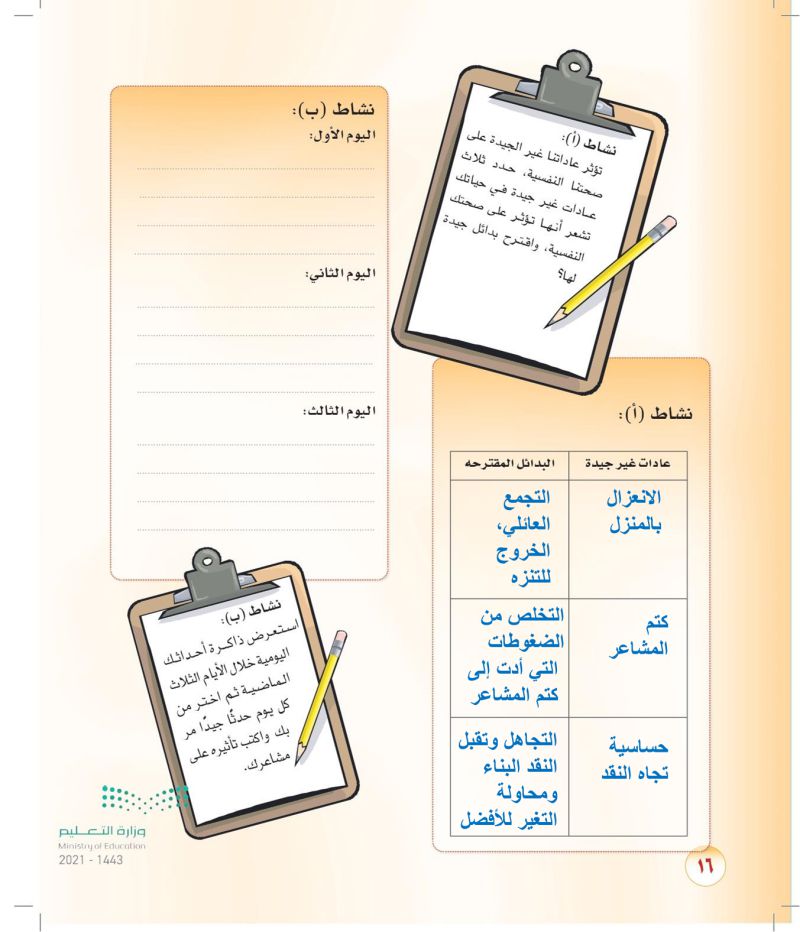 نشاط (أ):
تؤثر عاداتنا غير الجيدة على
صحتنا النفسية، حدد ثلاث
عادات غير جيدة في حياتك
تشعر أنها تؤثر على صحتك
النفسية، واقترح بدائل جيدة
لها؟
نشاط (أ):
عادات غير جيدة
البدائل المقترحه
الانعزال
بالمنزل
التجمع
العائلي،
الخروج
للتنزه
كتم
المشاعر
التخلص من
الضغوطات
التي أدت إلى
كتم المشاعر
حساسية
تجاه النقد
التجاهل وتقبل
النقد البناء
ومحاولة
التغير للأفضل
نشاط (ب):
اليوم الأول:
اليوم الثاني:
اليوم الثالث:
نشاط (ب):
استعرض ذاكرة أحداثك
اليومية خلال الأيام الثلاث
الماضية ثم اختر من
كل يوم حدثًا جيدًا مر
بك واكتب تأثيره على
مشاعرك.
وزارة التعليم
Ministry of Education
2021 - 1443
١٦